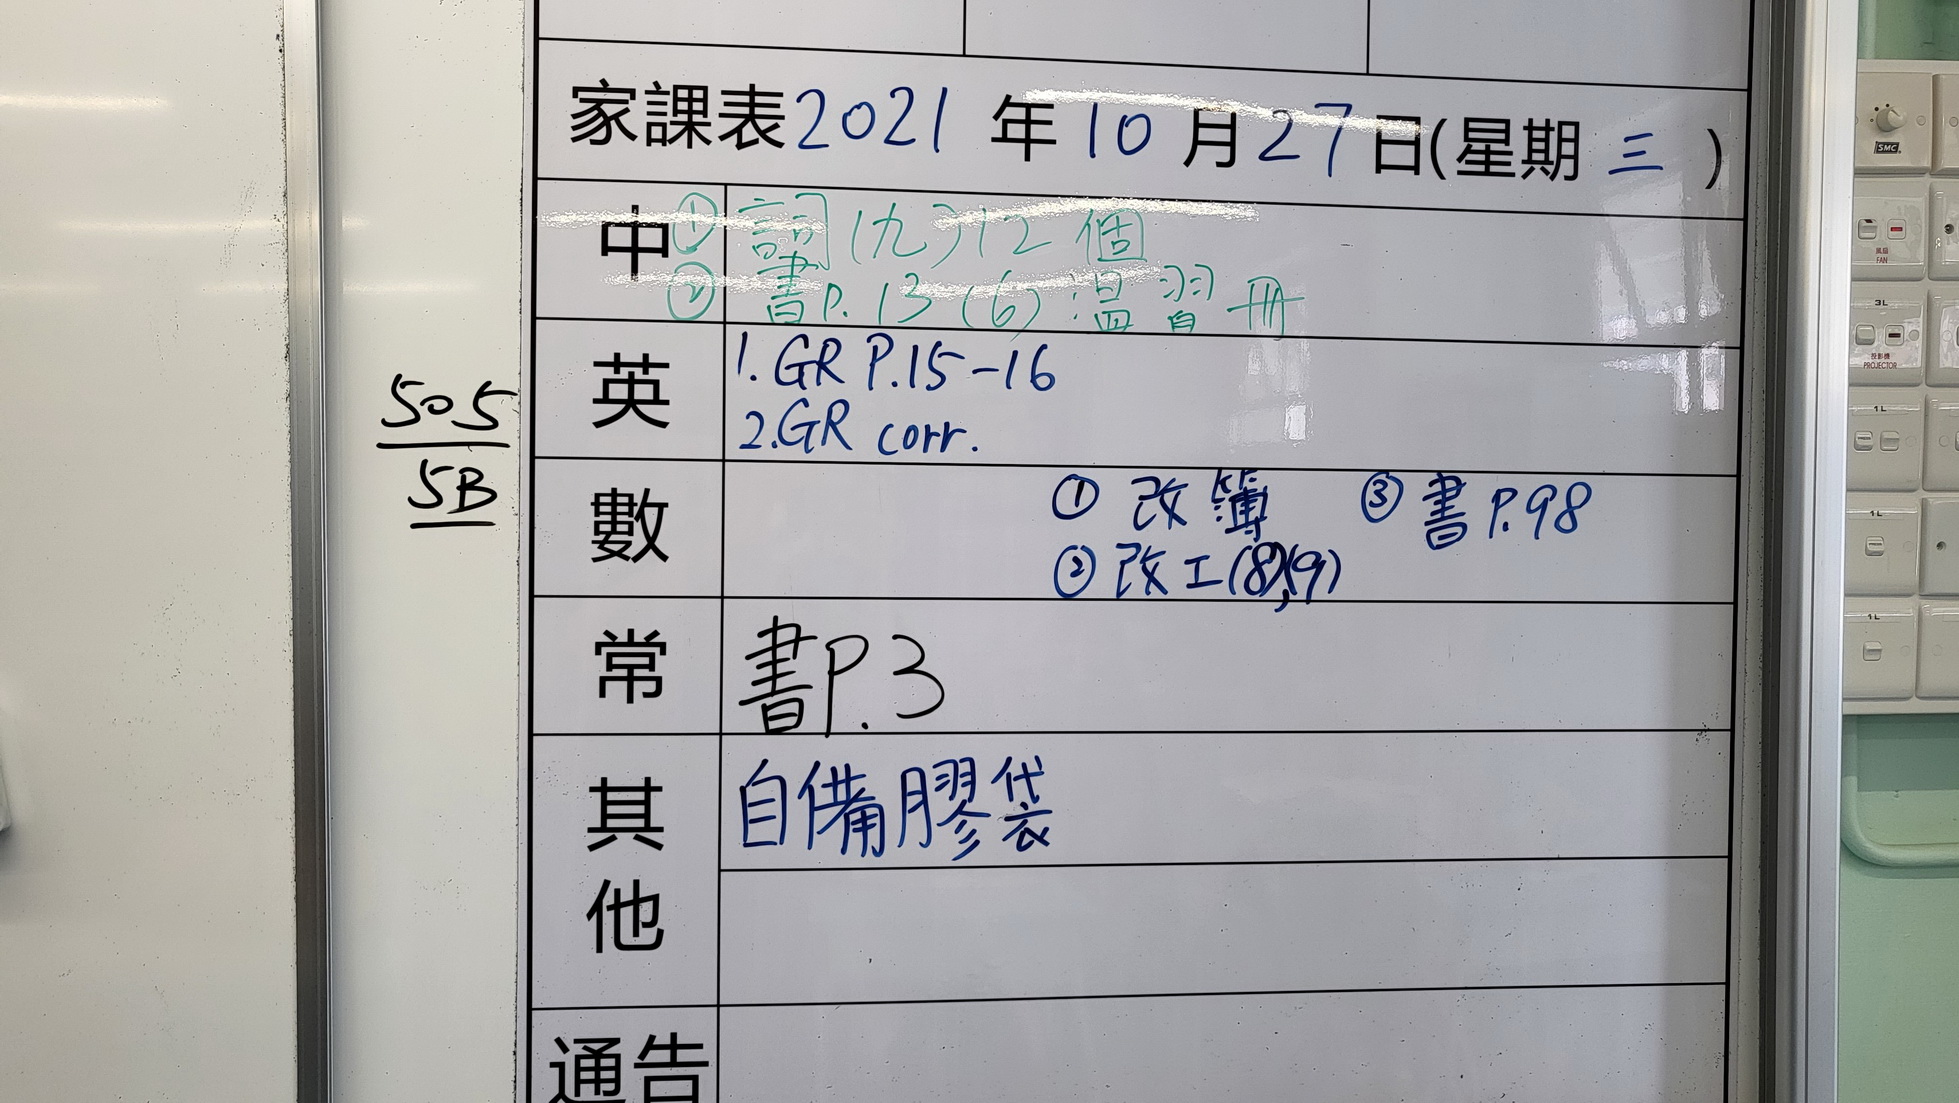 家課表2021年10月27日(星期三)
中 ① 詞(九)12個
② 書P.13(6)溫習冊
英 1.GR P.15-16
2.GR corr.
505
5B
數 ① 改簿 ③ 書P.98
② 改工(8),(9)
常 書P.3
其他 自備膠袋
通告
SMC
風扇
FAN
3L
投影機
PROJECTOR
1L
1L
1L